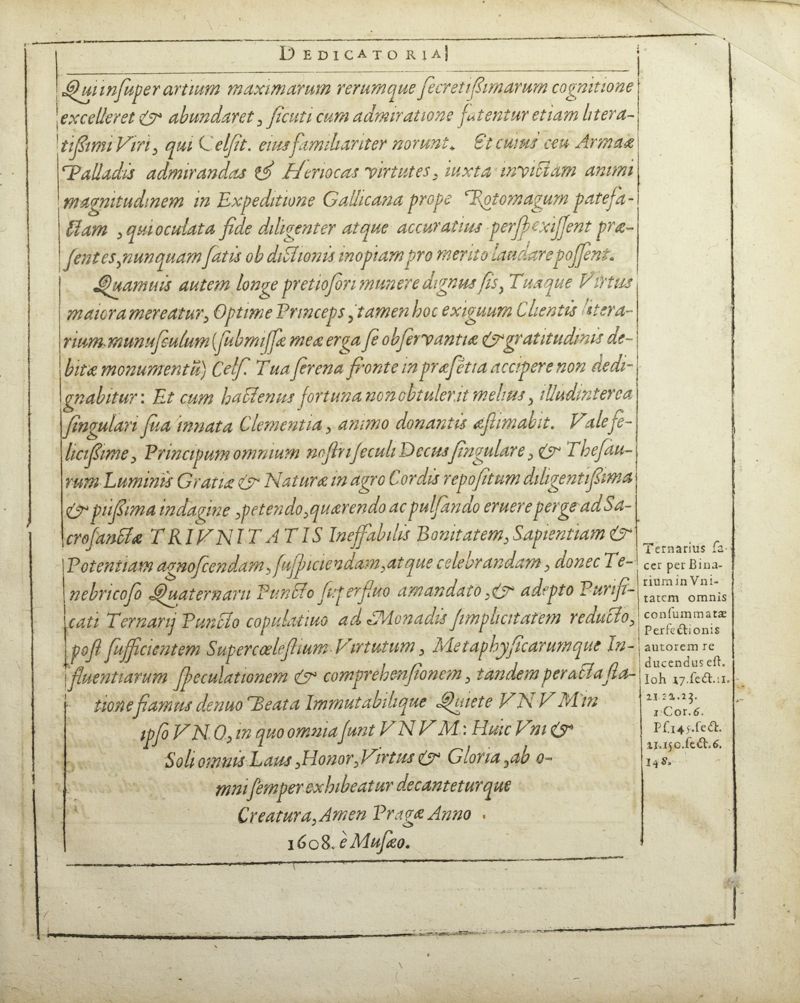 DEDICATORIA
Qui insuper artium maximarum rerumque secretißimarum cognitione
excelleret & abundaret, sicuti cum admiratione fatentur etiam litera-
tißimi Viri, qui Celsit. eius familiariter norunt. Et cuius ceu Armatæ
Palladis admirandas & Heriocas virtutes, iuxta invictam animi
magnitudinem in Expeditione Gallicana prope Rotomagum patefa-
ctam, qui oculata fide diligenter atque accuratius perspexissent præ-
sentes, nunquam satis ob dictionis inopiam pro merito laudare possent.
Quamuis autem longe pretiosiori munere dignus sis, Tuaque Virtus
maiora mereatur, Optime Princeps, tamen hoc exiguum Clientis litera-
rium munusculum (submissæ meæ erga se observantiæ & gratitudinis de-
bitæ monumentū) Cels. Tua serena fronte in præsetia accipere non dedi-
gnabitur: Et cum hactenus fortuna non obtulerit melius, illud interea
singulari sua innata Clementia, animo donantis æstimabit. Vale fe-
licißime, Principum omnium nostri seculi Decus singulare, & Thesau-
rum Luminis Gratiæ & Naturæ in agro Cordis repositum diligentißima
& piißima indagine, petendo, quærendo ac pulsando eruere perge ad Sa-
crosanctæ TRIVNITATIS Ineffabilis Bonitatem, Sapientiam &
Potentiam agnoscendam, suspiciendam, atque celebrandam, donec Te-
nebricoso Quaternarii Puncto superfluo amandato, & adepto Purifi-
cati Ternarij Puncto copulatiuo ad Monadis simplicitatem reducto,
post sufficientem Supercœlestium Virtutum, Metaphysicarumque In-
fluentiarum speculationem & comprehensionem, tandem peracta sta-
tione fiamus denuo Beata Immutabilique Quiete VNVM in
ipso VNO, in quo omnia sunt VNVM: Huic Vni &
Soli omnis Laus, Honor, Virtus & Gloria, ab o-
mni semper exhibeatur decanteturque
Creatura, Amen Pragæ Anno
1608. è Musæo.
Ternarius sa-
cer per Bina-
rium in Vni-
tatem omnis
consummatæ
Perfectionis
autorem re
ducendus est.
Ioh 17. sect. 11.
21. 22. 23.
1 Cor. 6.
Ps. 145. sect.
21. 150. sect. 6.
148.